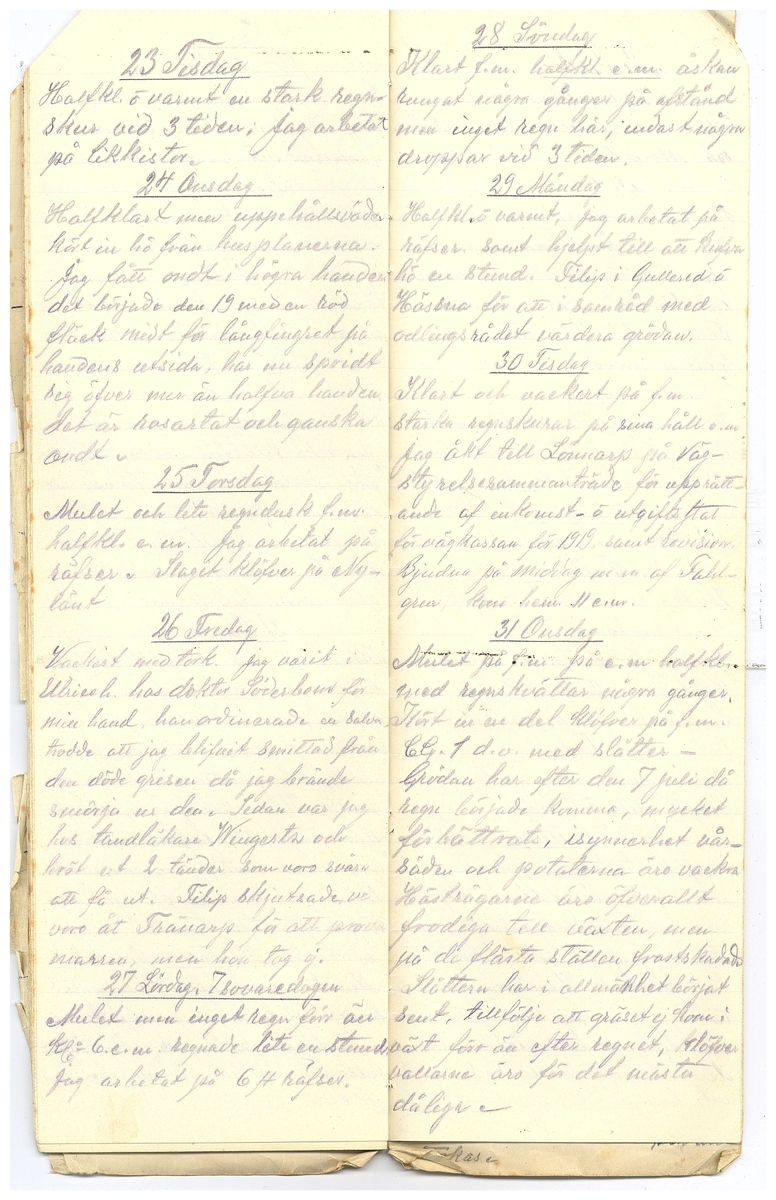 23 Tisdag
Halfkl. ö varmt en stark regn-
skur vid 3 tiden, jag arbetat
på likkistor.
24 Onsdag
Halfklart men uppehållsväder
kört in hö från husplanerna.
Jag fått ondt i högra handen
det började den 19 med en röd
fläck midt för långfingret på
handens utsida, har nu spridt
sig öfver mer än halfva handen
det är rosartat och ganska
ondt.
25 Torsdag
Mulet och lite regndusk f.m.
halfkl. e.m. Jag arbetat på
räfser. Slaget klöfver på Ny-
länt
26 Fredag
Vackert med tork. jag varit i
Ulriceh. hos doktor Söderbom för
min hand, han ordinerade en salva
trodde att jag blifvit smittad från
den döde grisen då jag brände
smörja ur den. Sedan var jag
hos tandläkare Wingertz och
bröt ut 2 tänder som voro svåra
att få ut. Filip skjutsade, vi
voro åt Tränarp för att prova
marren, men hon tog ej.
27 Lördag, 7sovaredagen
Mulet men inget regn förr än
Kl. 6. e.m. regnade lite en stund
Jag arbetat på 64 räfser.
28 Söndag
Klart f.m. halfkl. e.m. åskan
rungat några gånger på afstånd
men inget regn här, endast några
droppar vid 3 tiden.
29 Måndag
Halfkl. ö varmt, jag arbetat på
räfser. samt hjelpt till att
hö en stund. Filip i Gullered ö
Hössna för att i samråd med
odlingsrådet värdera grödan.
30 Tisdag
Klart och vackert på f.m.
starka regnskurar på sina håll e.m
jag åkt till Lönnarp på Väg-
styrelsesammanträde för upprätt-
ande af inkomst- ö utgiftsstat
för vägkassan för 1919. samt revision.
Bjudna på middag m.m af Fahl-
gren, kom hem 11 e.m.
31 Onsdag
Mulet på f.m. på e.m. halfkl.
med regnskvättar några gånger.
Kört in en del klöfver på f.m.
1 d.v. med slätter -
Grödan har efter den 7 juli då
regn började komma, mycket
förbättrats, isynnerhet vår-
säden och potaterna äro vackra
Höstrågarne äro öfverallt
frodiga till växten, men
på de flästa ställen frostskadade
Slåttern har i allmänhet börjat
sent, tillfölje att gräset ej kom i
växt förr än efter regnet, klöfver
vallarne äro för det mästa
dåliga